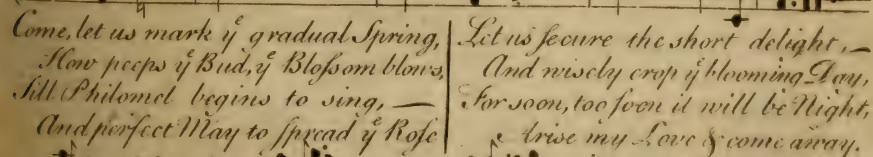 Come, let us mark yᵉ gradual Spring,
How peeps yᵉ Bud, yᵉ Bloſsom blows,
Till Philomel begins to sing, —
And perfect May to ſpread yᵉ Roſe
Let us ſecure the short delight, —
And wisely crop yᵉ blooming Day,
For soon, too ſoon it will be Night,
Arise my Love & come away.